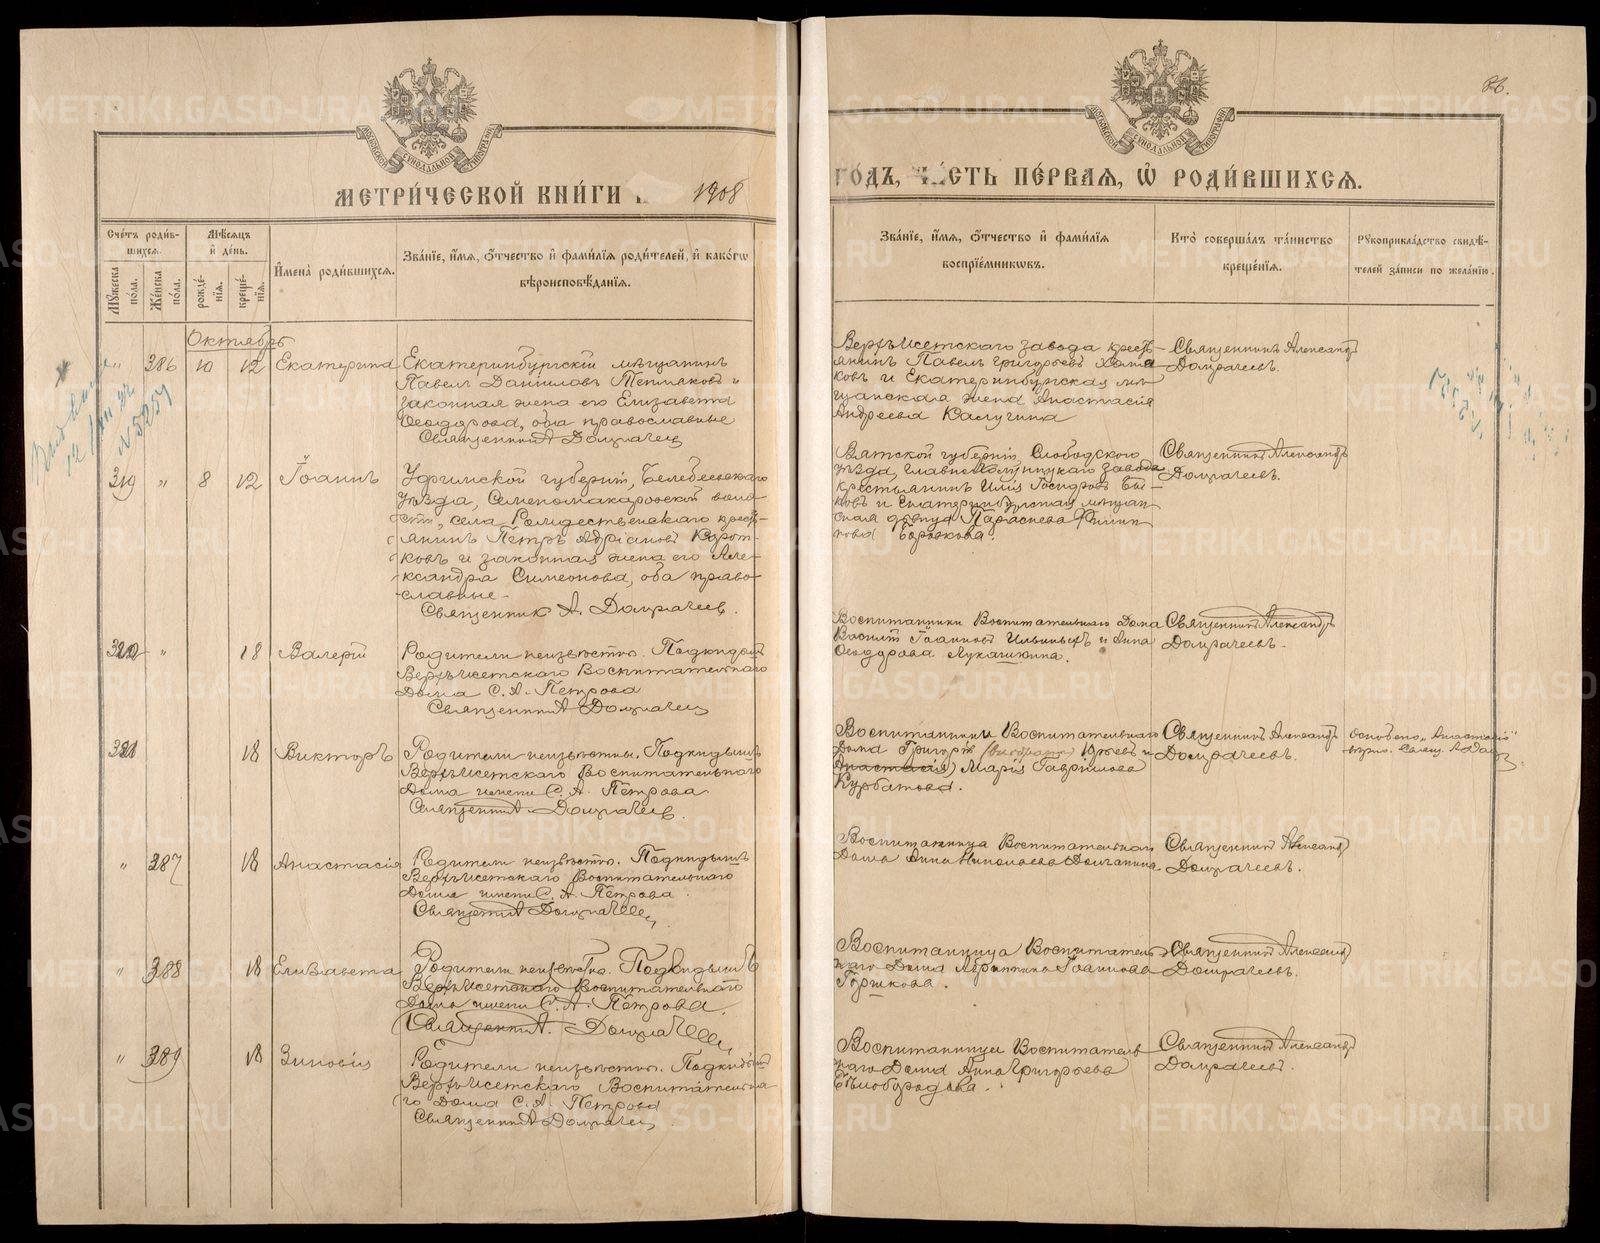 86.
МЕТРИ́ЧЕСКОЙ КНИ́ГИ 1908
ГОДЪ, ЧАСТЬ ПЕ́РВАЯ, Ѡ РОДИ́ВШИХСЯ.
Сче́тъ роди́вшихся.
Мꙋ́жеска по́ла.
Же́нска по́ла.
Мѣ́сяцъ и де́нь.
рожде́нїя.
креще́нїя.
И́мена роди́вшихся.
Зва́нїе, и́мя, ѻ́тчество и фами́лїя роди́телей, и како́гѡ вѣроисповѣ́данїя.
Зва́нїе, и́мя, ѻ́тчество и фами́лїя воспрїе́мникѡвъ.
Кто̀ соверша́лъ та́инство креще́нїя.
Рꙋкоприкла́дство свидѣ́телей за́писи по жела́нїю.
Октябрь
" 386 10 12 Екатерина
Екатеринбургскій мѣщанинъ
Павелъ Даниловъ Тепляковъ и
законная жена его Елизавета
Ѳеодорова, оба православные
Священникъ А. Домрачевъ
Верхъ-Исетскаго завода крестьянинъ
Павелъ Григорьевъ
и Екатеринбургская мѣщанская
жена Анастасія
Андреева Калугина
Священникъ Александръ
Домрачевъ.
319 " 8 12 Іоаннъ
Уфимской губерніи, Белебеевскаго
уѣзда, волости,
села Рождественскаго крестьянинъ
Петръ Адріановъ
и законная жена его Александра
Симеонова, оба православные
Священникъ А. Домрачевъ.
Вятской губерніи, Слободского
уѣзда, завода
крестьянинъ
и Екатеринбургская мѣщанская
Параскева Филиппова
Священникъ Александръ
Домрачевъ.
320 " 18 Валерій
Родители неизвѣстны. Подкидышъ
Верхъ-Исетскаго Воспитательнаго
Дома С. А. Петрова
Священникъ А. Домрачевъ
Воспитанники Воспитательнаго Дома
Василій Іоанновъ и Анна
Ѳеодорова Лукашкина.
Священникъ Александръ
Домрачевъ.
321 18 Викторъ
Родители неизвѣстны. Подкидышъ
Верхъ-Исетскаго Воспитательнаго
Дома имени С. А. Петрова
Священникъ А. Домрачевъ.
Воспитанники Воспитательнаго
Дома Григорій Юрьевъ и
Анастасія) Марія Гавріилова
Курбатова.
Священникъ Александръ
Домрачевъ.
" 387 18 Анастасія
Родители неизвѣстны. Подкидышъ
Верхъ-Исетскаго Воспитательнаго
Дома имени С. А. Петрова.
Священникъ А. Домрачевъ
Воспитанница Воспитательнаго
Дома Анна Николаева
Священникъ Александръ
Домрачевъ.
" 388 18 Елизавета
Родители неизвѣстны. Подкидышъ
Верхъ-Исетскаго Воспитательнаго
Дома имени С. А. Петрова.
Священникъ А. Домрачевъ
Воспитанница Воспитательнаго
Дома Іоаннова
Горшкова.
Священникъ Александръ
Домрачевъ.
" 389 18 Зиновія
Родители неизвѣстны. Подкидышъ
Верхъ-Исетскаго Воспитательнаго
Дома С. А. Петрова
Священникъ А. Домрачевъ
Воспитанница Воспитательнаго
Дома Анна Григорьева
Бѣлобородова.
Священникъ Александръ
Домрачевъ.
METRIKI.GASO-URAL.RU